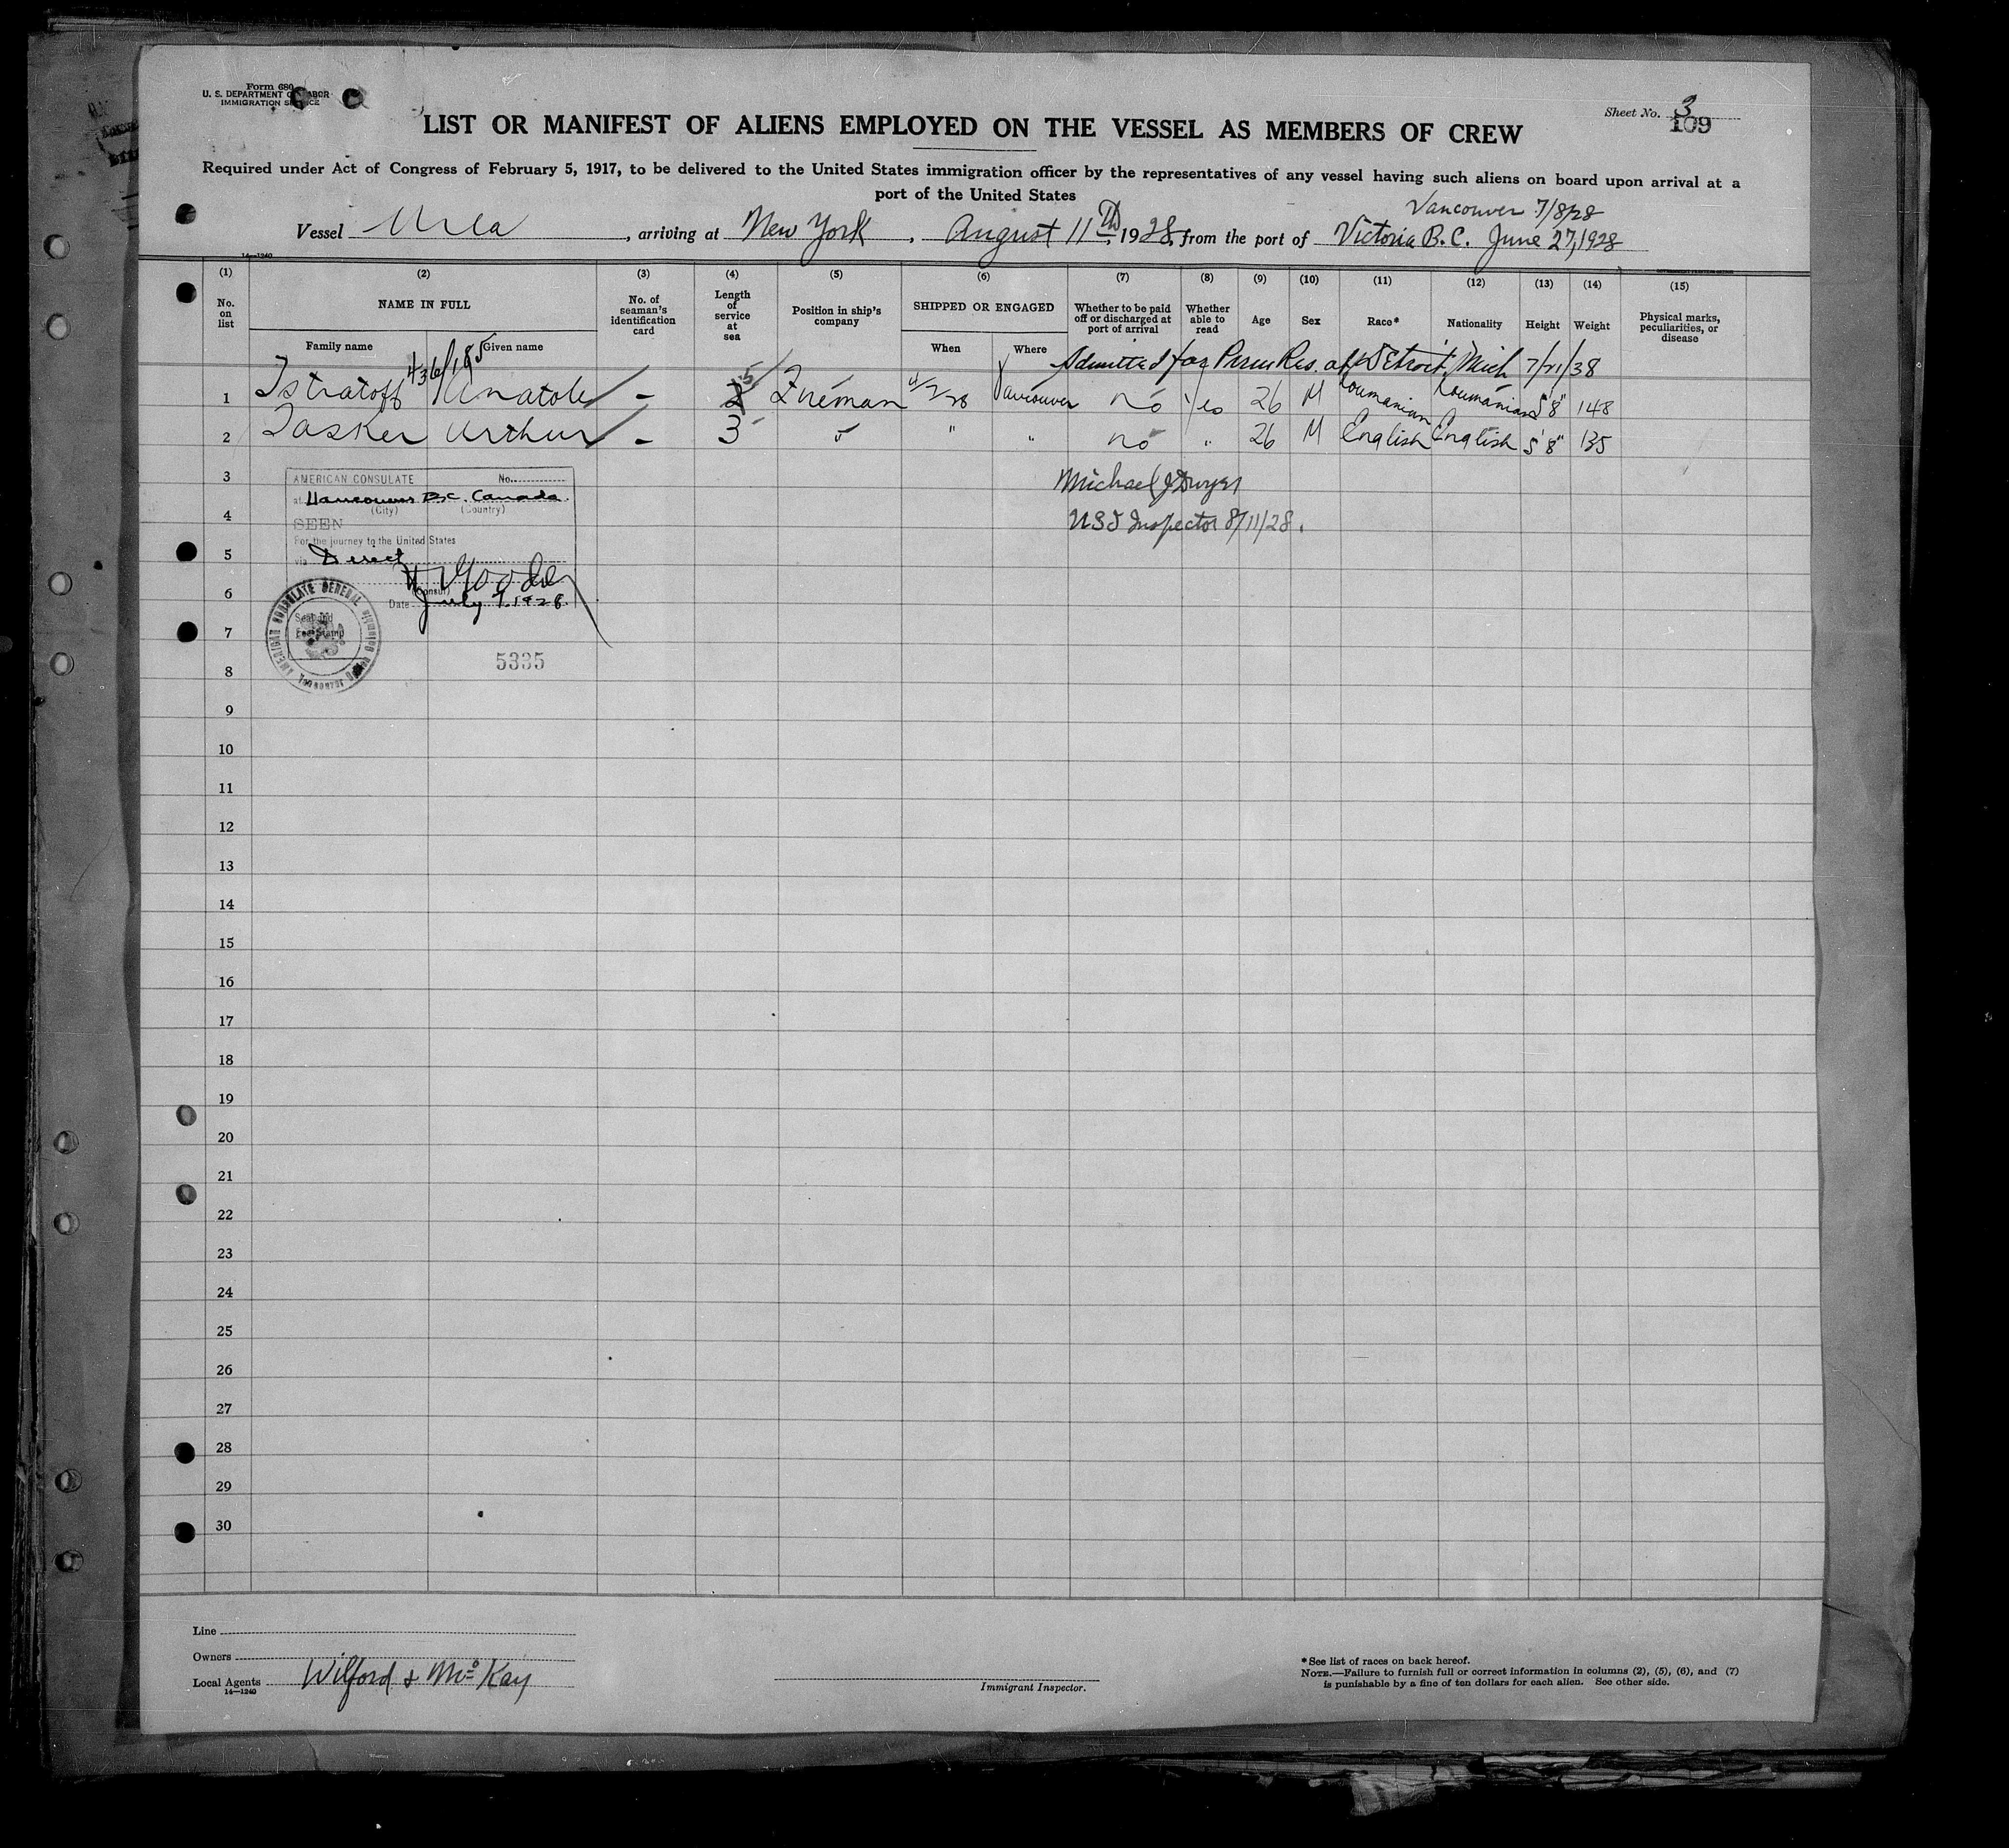 Form 680
U. S. DEPARTMENT OF LABOR
IMMIGRATION SERVICE
Sheet No. 3
109
LIST OR MANIFEST OF ALIENS EMPLOYED ON THE VESSEL AS MEMBERS OF CREW
Required under Act of Congress of February 5, 1917, to be delivered to the United States immigration officer by the representatives of any vessel having such aliens on board upon arrival at a
port of the United States
Vancouver 7/8/28
Vessel , arriving at New York , August 11th, 1928, from the port of Victoria B.C. June 27, 1928
14—1240
(1) (2) (3) (4) (5) (6) (7) (8) (9) (10) (11) (12) (13) (14) (15)
No. on list NAME IN FULL No. of seaman's identification card Length of service at sea Position in ship's company SHIPPED OR ENGAGED Whether to be paid off or discharged at port of arrival Whether able to read Age Sex Race* Nationality Height Weight Physical marks, peculiarities, or disease
Family name Given name When Where
436/185 Admitted for Perm Res. at Detroit, Mich 7/21/38
1 Istratoff Anatole – 5 Fireman /28 Vancouver no Yes 26 M Roumanian Roumanian 5'8" 148
2 Tasker Arthur – 3 " " " no " 26 M English English 5'8" 135
3 Michael J Dwyer
4 USI Inspector 8/11/28.
AMERICAN CONSULATE No.
at Vancouver B.C. Canada.
(City) (Country)
SEEN
For the journey to the United States
via Direct
(Consul)
Date July 7, 1928.
AMERICAN CONSULATE GENERAL
Seal and
Fee Stamp
5335
5
6
7
8
9
10
11
12
13
14
15
16
17
18
19
20
21
22
23
24
25
26
27
28
29
30
Line
Owners
Local Agents Wilford & McKay
14—1240
Immigrant Inspector.
*See list of races on back hereof.
NOTE.—Failure to furnish full or correct information in columns (2), (5), (6), and (7)
is punishable by a fine of ten dollars for each alien. See other side.